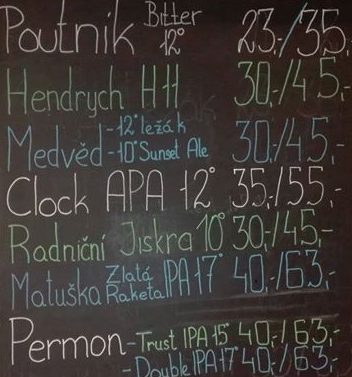 Poutník Bitter 12° 23,-/35,-
Hendrych H11 30,-/45,-
Medvěd -12° ležák 30,/45,-
-10° Sunset Ale
Clock APA 12° 35,/55,-
Radniční Jiskra 10° 30,/45,-
Matuška Zlatá Raketa IPA 17° 40,-/63,-
Permon -Trust IPA 15° 40,-/63,-
-Double IPA 17° 40,-/63,-